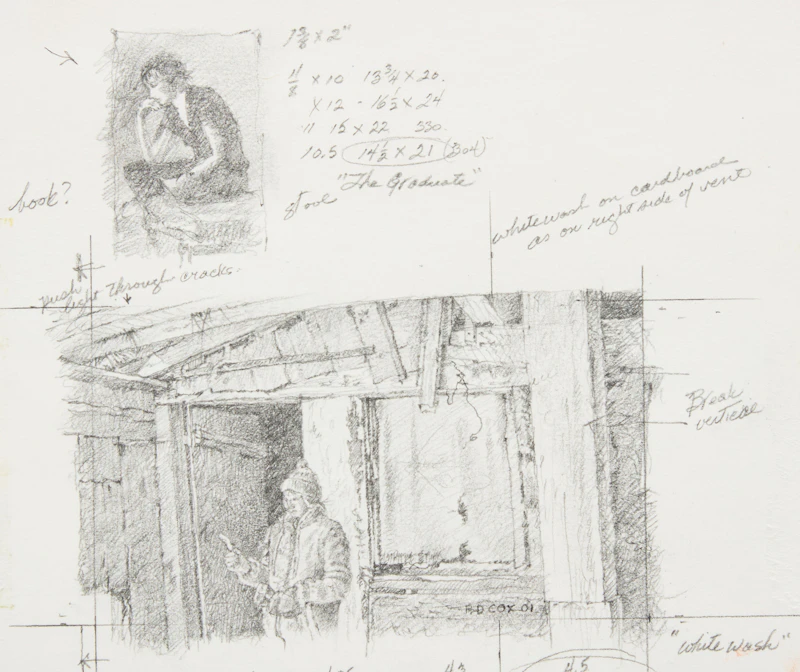 1 3/8 x 2"
11/8 x 10 13 3/4 x 20.
x 12 - 16 1/2 x 24
" 15 x 22 330.
10.5 14 1/2 x 21 (304)
"The Graduate"
stool
book?
whitewash on cardboard
as on right side of vent
push
light through cracks.
Break
vertical
R D COX 01
"White Wash"
4.5